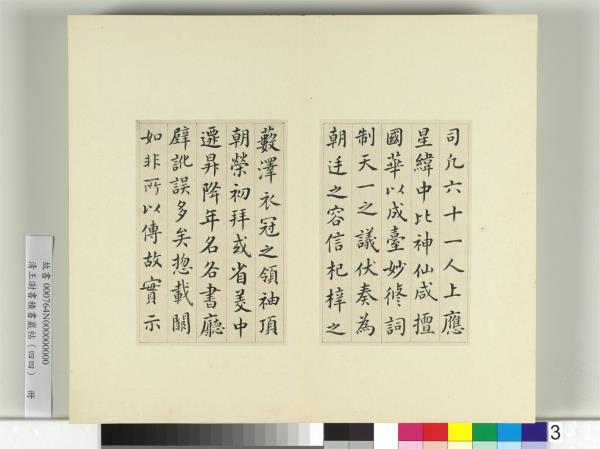 司凡六十一人上應
星緯中比神仙咸擅
國華以成臺妙修詞
制天一之議伏奏為
朝廷之容信杞梓之
藪澤衣冠之領袖頂
朝榮初拜或省美中
遷昇降年名各書廳
壁訛誤多矣惣載闕
如非所以傳故實示
故書 000764N000000000
清王澍書積書巖帖（四四） 冊
3